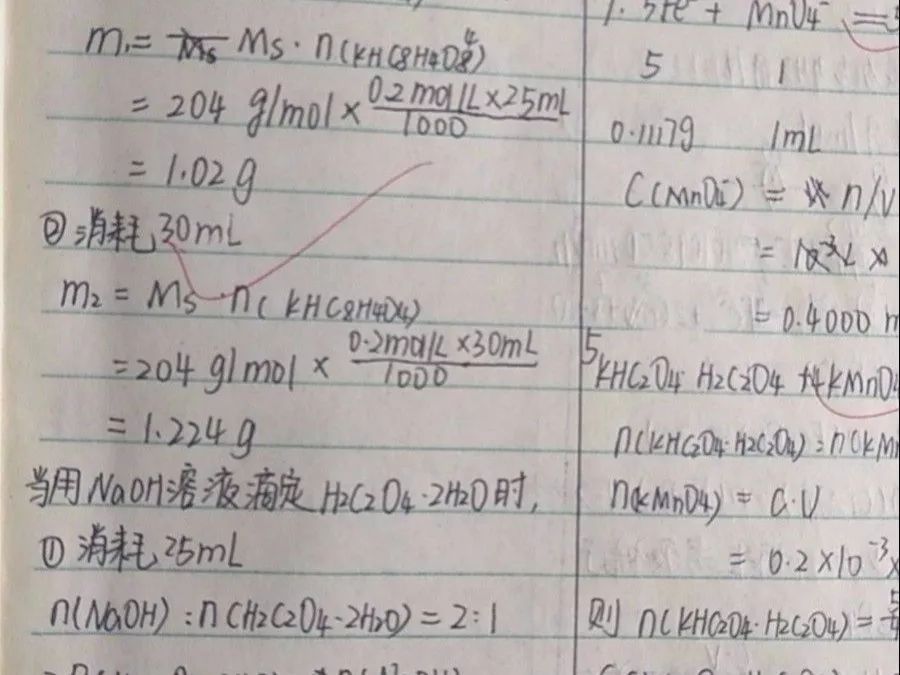 m₁= Ms·n(KHC8H4O4)
= 204 g/mol × 0.2mol/L×25mL/1000
= 1.02g
② 消耗30mL
m₂ = Ms·n(KHC8H4O4)
=204 g/mol × 0.2mol/L×30mL/1000
= 1.224g
当用NaOH溶液滴定H2C2O4·2H2O时,
① 消耗25mL
n(NaOH):n(H2C2O4·2H2O)=2:1
+ MnO4⁻ =
5 1
0.1117g 1mL
C(MnO4⁻) = n/V
= 0.4000
5.
KHC2O4·H2C2O4 +4KMnO4
n(KHC2O4·H2C2O4):n(KMn
n(KMnO4) = C·V
= 0.2×10⁻³×
则 n(KHC2O4·H2C2O4)=